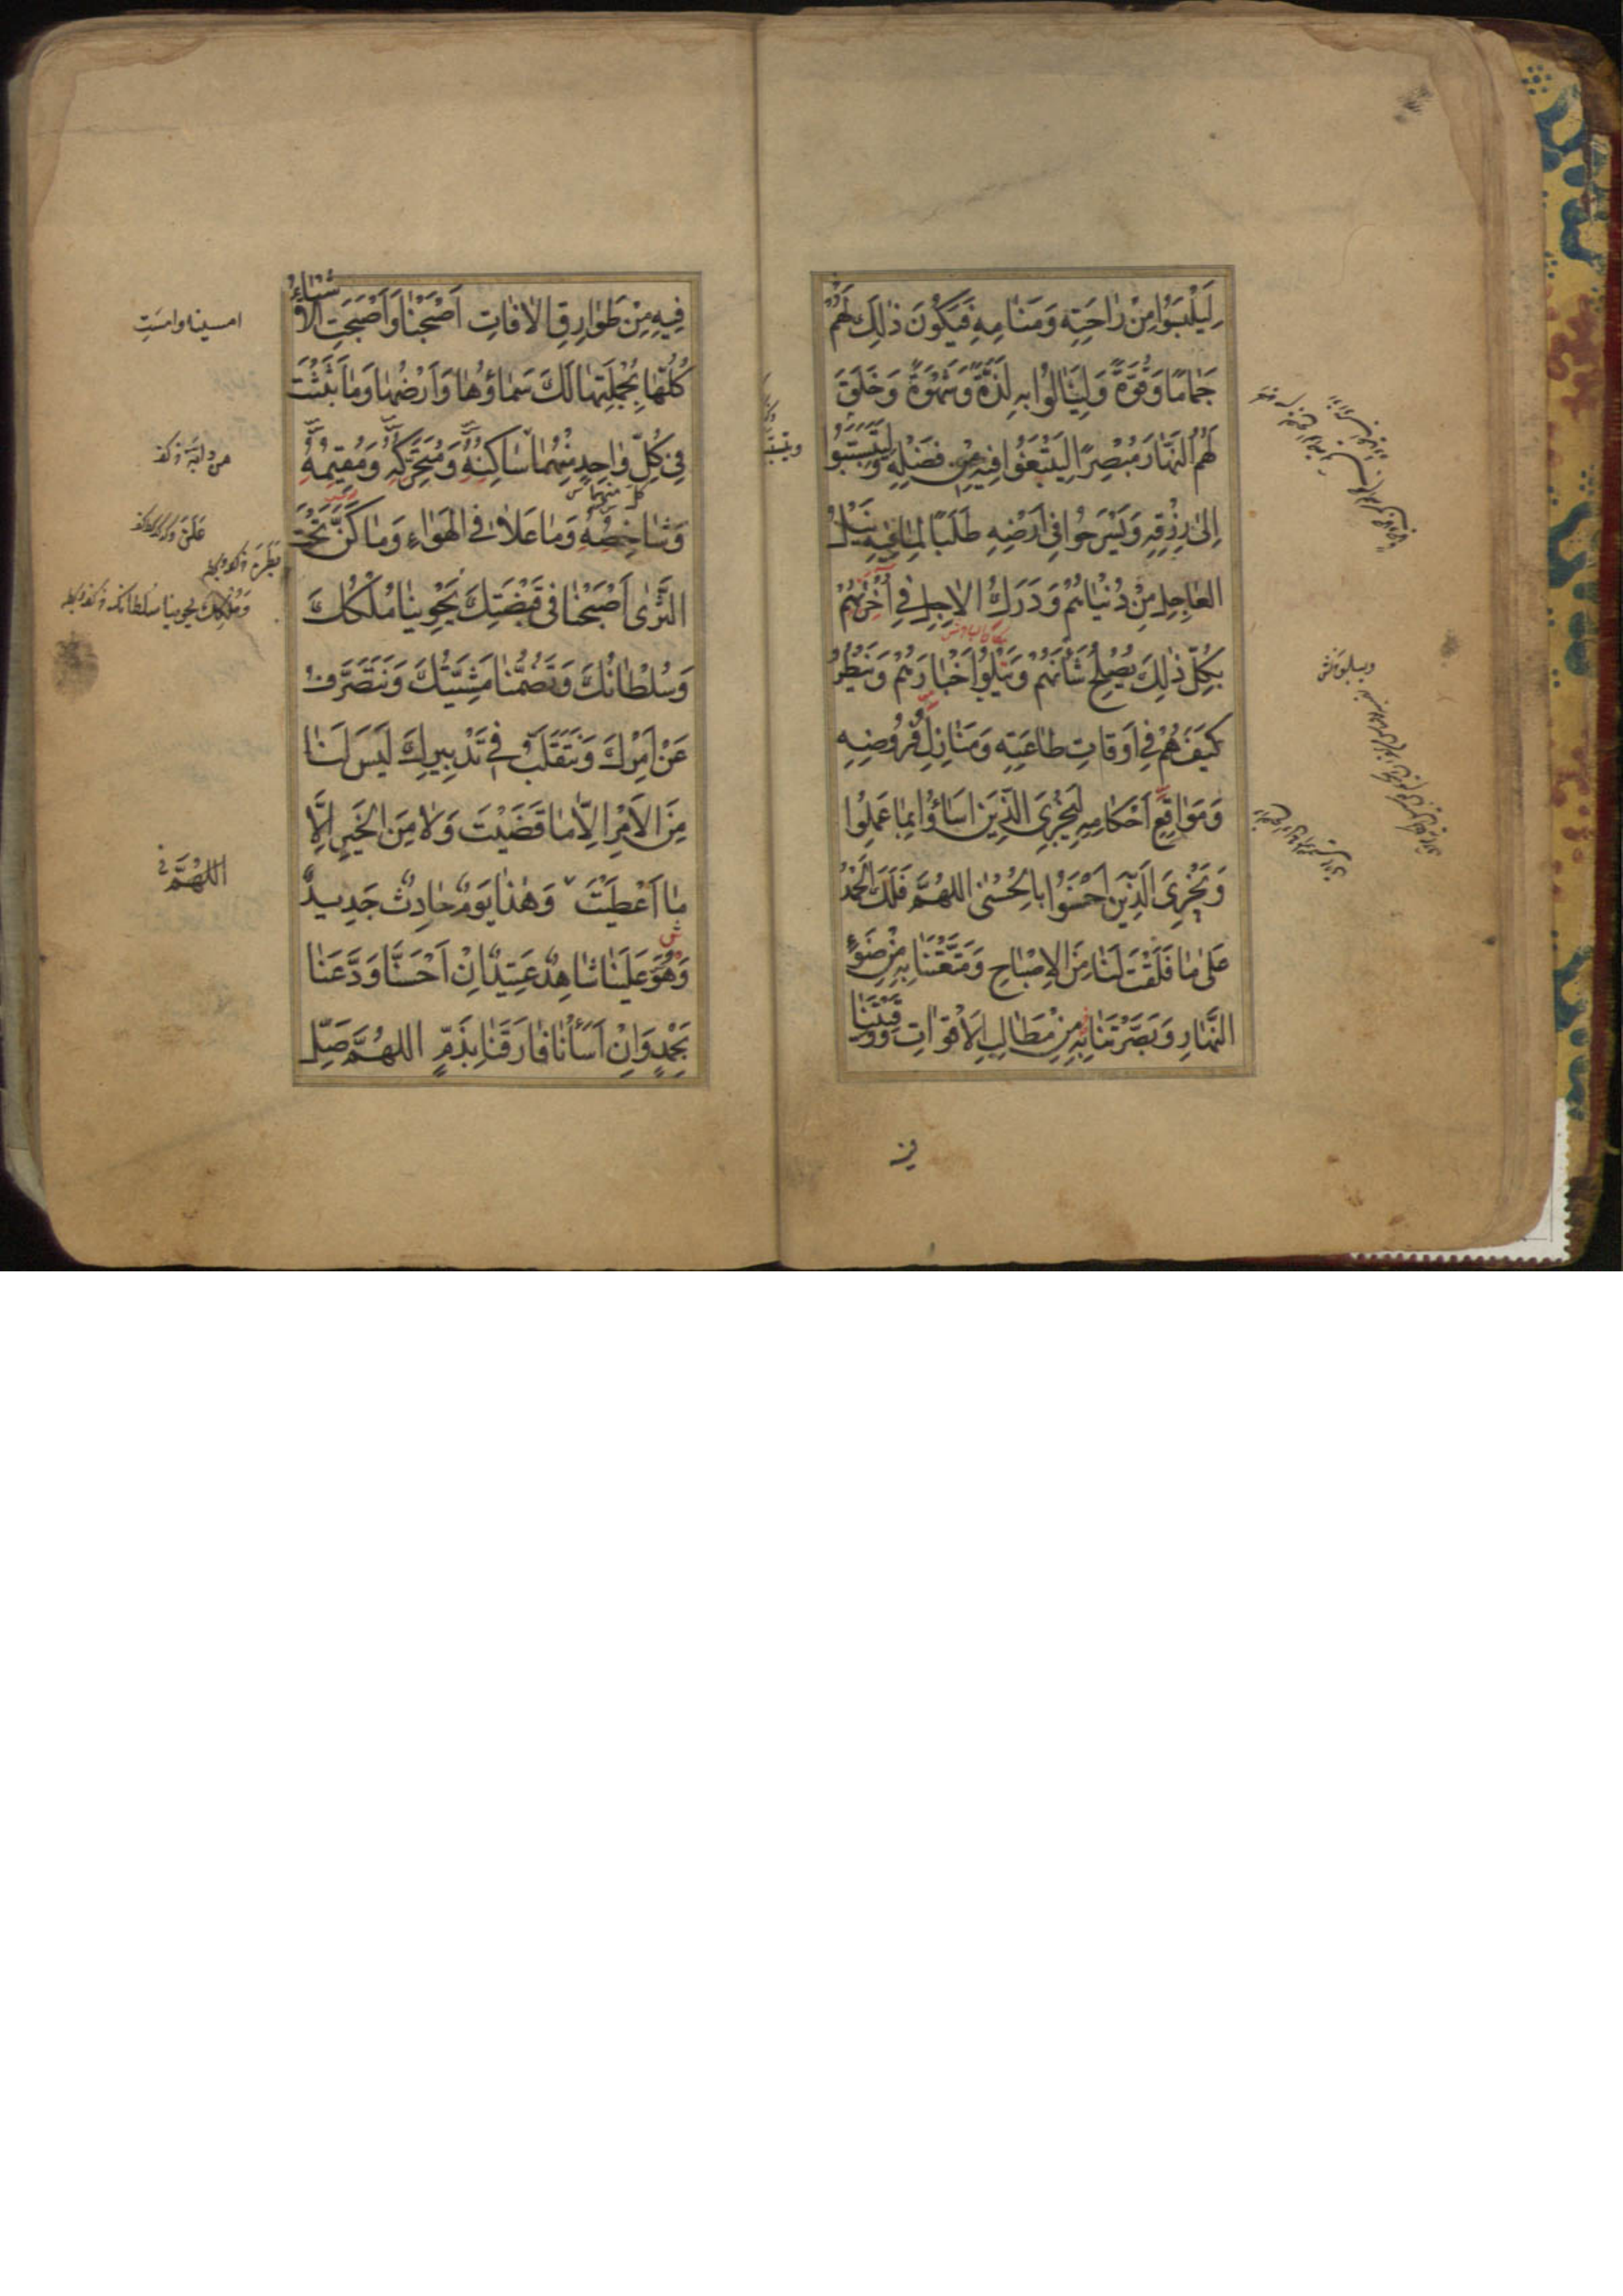 لِيَلْبَسُوا مِنْ رَاحَتِهِ وَمَنَامِهِ فَيَكُونَ ذٰلِكَ لَهُمْ
جَمَامًا وَقُوَّةً وَلِيَنَالُوا بِهِ لَذَّةً وَشَهْوَةً وَخَلَقَ
لَهُمُ النَّهَارَ مُبْصِرًا لِيَبْتَغُوا فِيهِ مِنْ فَضْلِهِ وَلِيَتَسَبَّبُوا
اِلىٰ رِزْقِهِ وَيَسْرَحُوا فِي اَرْضِهِ طَلَبًا لِمَا فِيهِ نَيْلُ
العَاجِلِ مِنْ دُنْيَاهُمْ وَدَرَكُ الاٰجِلِ فِي اُخْرٰيهُمْ
بِكُلِّ ذٰلِكَ يُصْلِحُ شَأْنَهُمْ وَيَبْلُوا اَخْبَارَهُمْ وَيَنْظُرُ
كَيْفَ هُمْ فِي اَوْقَاتِ طَاعَتِهِ وَمَنَازِلِ فُرُوضِهِ
وَمَوَاقِعِ اَحْكَامِهِ لِيَجْزِيَ الَّذِينَ اَسَاؤُا بِمَا عَمِلُوا
وَيَجْزِيَ الَّذِينَ اَحْسَنُوا بِالْحُسْنٰى اللهُمَّ فَلَكَ الْحَمْدُ
عَلىٰ مَا فَلَقْتَ لَنَا مِنَ الاِصْبَاحِ وَمَتَّعْتَنَا بِهِ مِنْ ضَوْءِ
النَّهَارِ وَبَصَّرْتَنَا بِهِ مِنْ مَطَالِبِ الاَقْوَاتِ وَوَقَيْتَنَا
فيه
فِيهِ مِنْ طَوَارِقِ الاٰفَاتِ اَصْبَحْنَا وَاَصْبَحَتِ الاَشْيَاءُ
كُلُّهَا بِجُمْلَتِهَا لَكَ سَمَاؤُهَا وَاَرْضُهَا وَمَا بَثَثْتَ
فِي كُلِّ وَاحِدٍ مِنْهُمَا سَاكِنُهُ وَمُتَحَرِّكُهُ وَمُقِيمُهُ
وَشَاخِصُهُ وَمَا عَلَا فِي الْهَوَاءِ وَمَا كَنَّ تَحْتَ
الثَّرٰى اَصْبَحْنَا فِي قَبْضَتِكَ يَحْوِينَا مُلْكُكَ
وَسُلْطَانُكَ وَتَضُمُّنَا مَشِيَّتُكَ وَنَتَصَرَّفُ
عَنْ اَمْرِكَ وَنَتَقَلَّبُ فِي تَدْبِيرِكَ لَيْسَ لَنَا
مِنَ الاَمْرِ اِلَّا مَا قَضَيْتَ وَلَا مِنَ الْخَيْرِ اِلَّا
مَا اَعْطَيْتَ وَهٰذَا يَوْمٌ حَادِثٌ جَدِيدٌ
وَهُوَ عَلَيْنَا شَاهِدٌ عَتِيدٌ اِنْ اَحْسَنَّا وَدَّعَنَا
بِحَمْدٍ وَاِنْ اَسَأْنَا فَارَقَنَا بِذَمٍّ اللهُمَّ صَلِّ
امسينا وامسَتِ
اللهُمَّ